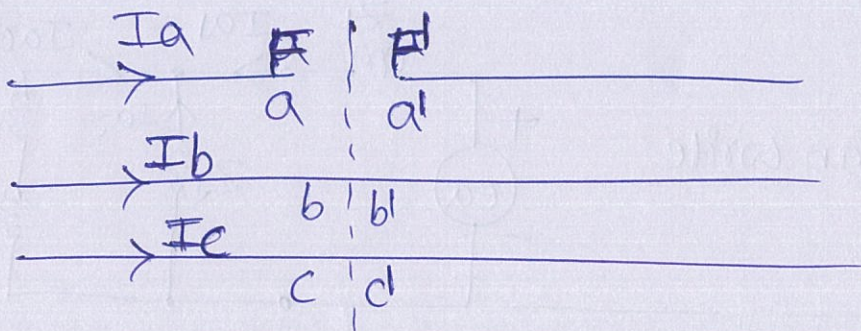 Ia F F'
a a'
Ib
b b'
Ic
c c'